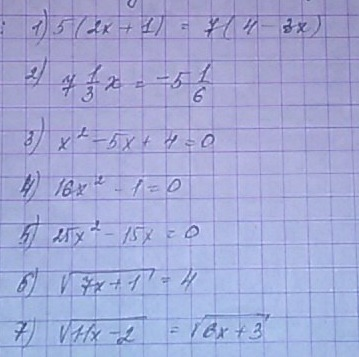 1) 5(2x + 1) = 7(4 - 3x)
2) 7 1/3 x = -5 1/6
3) x² - 5x + 4 = 0
4) 16x² - 1 = 0
5) 25x² - 15x = 0
6) √(7x + 1) = 4
7) √(11x - 2) = √(6x + 3)